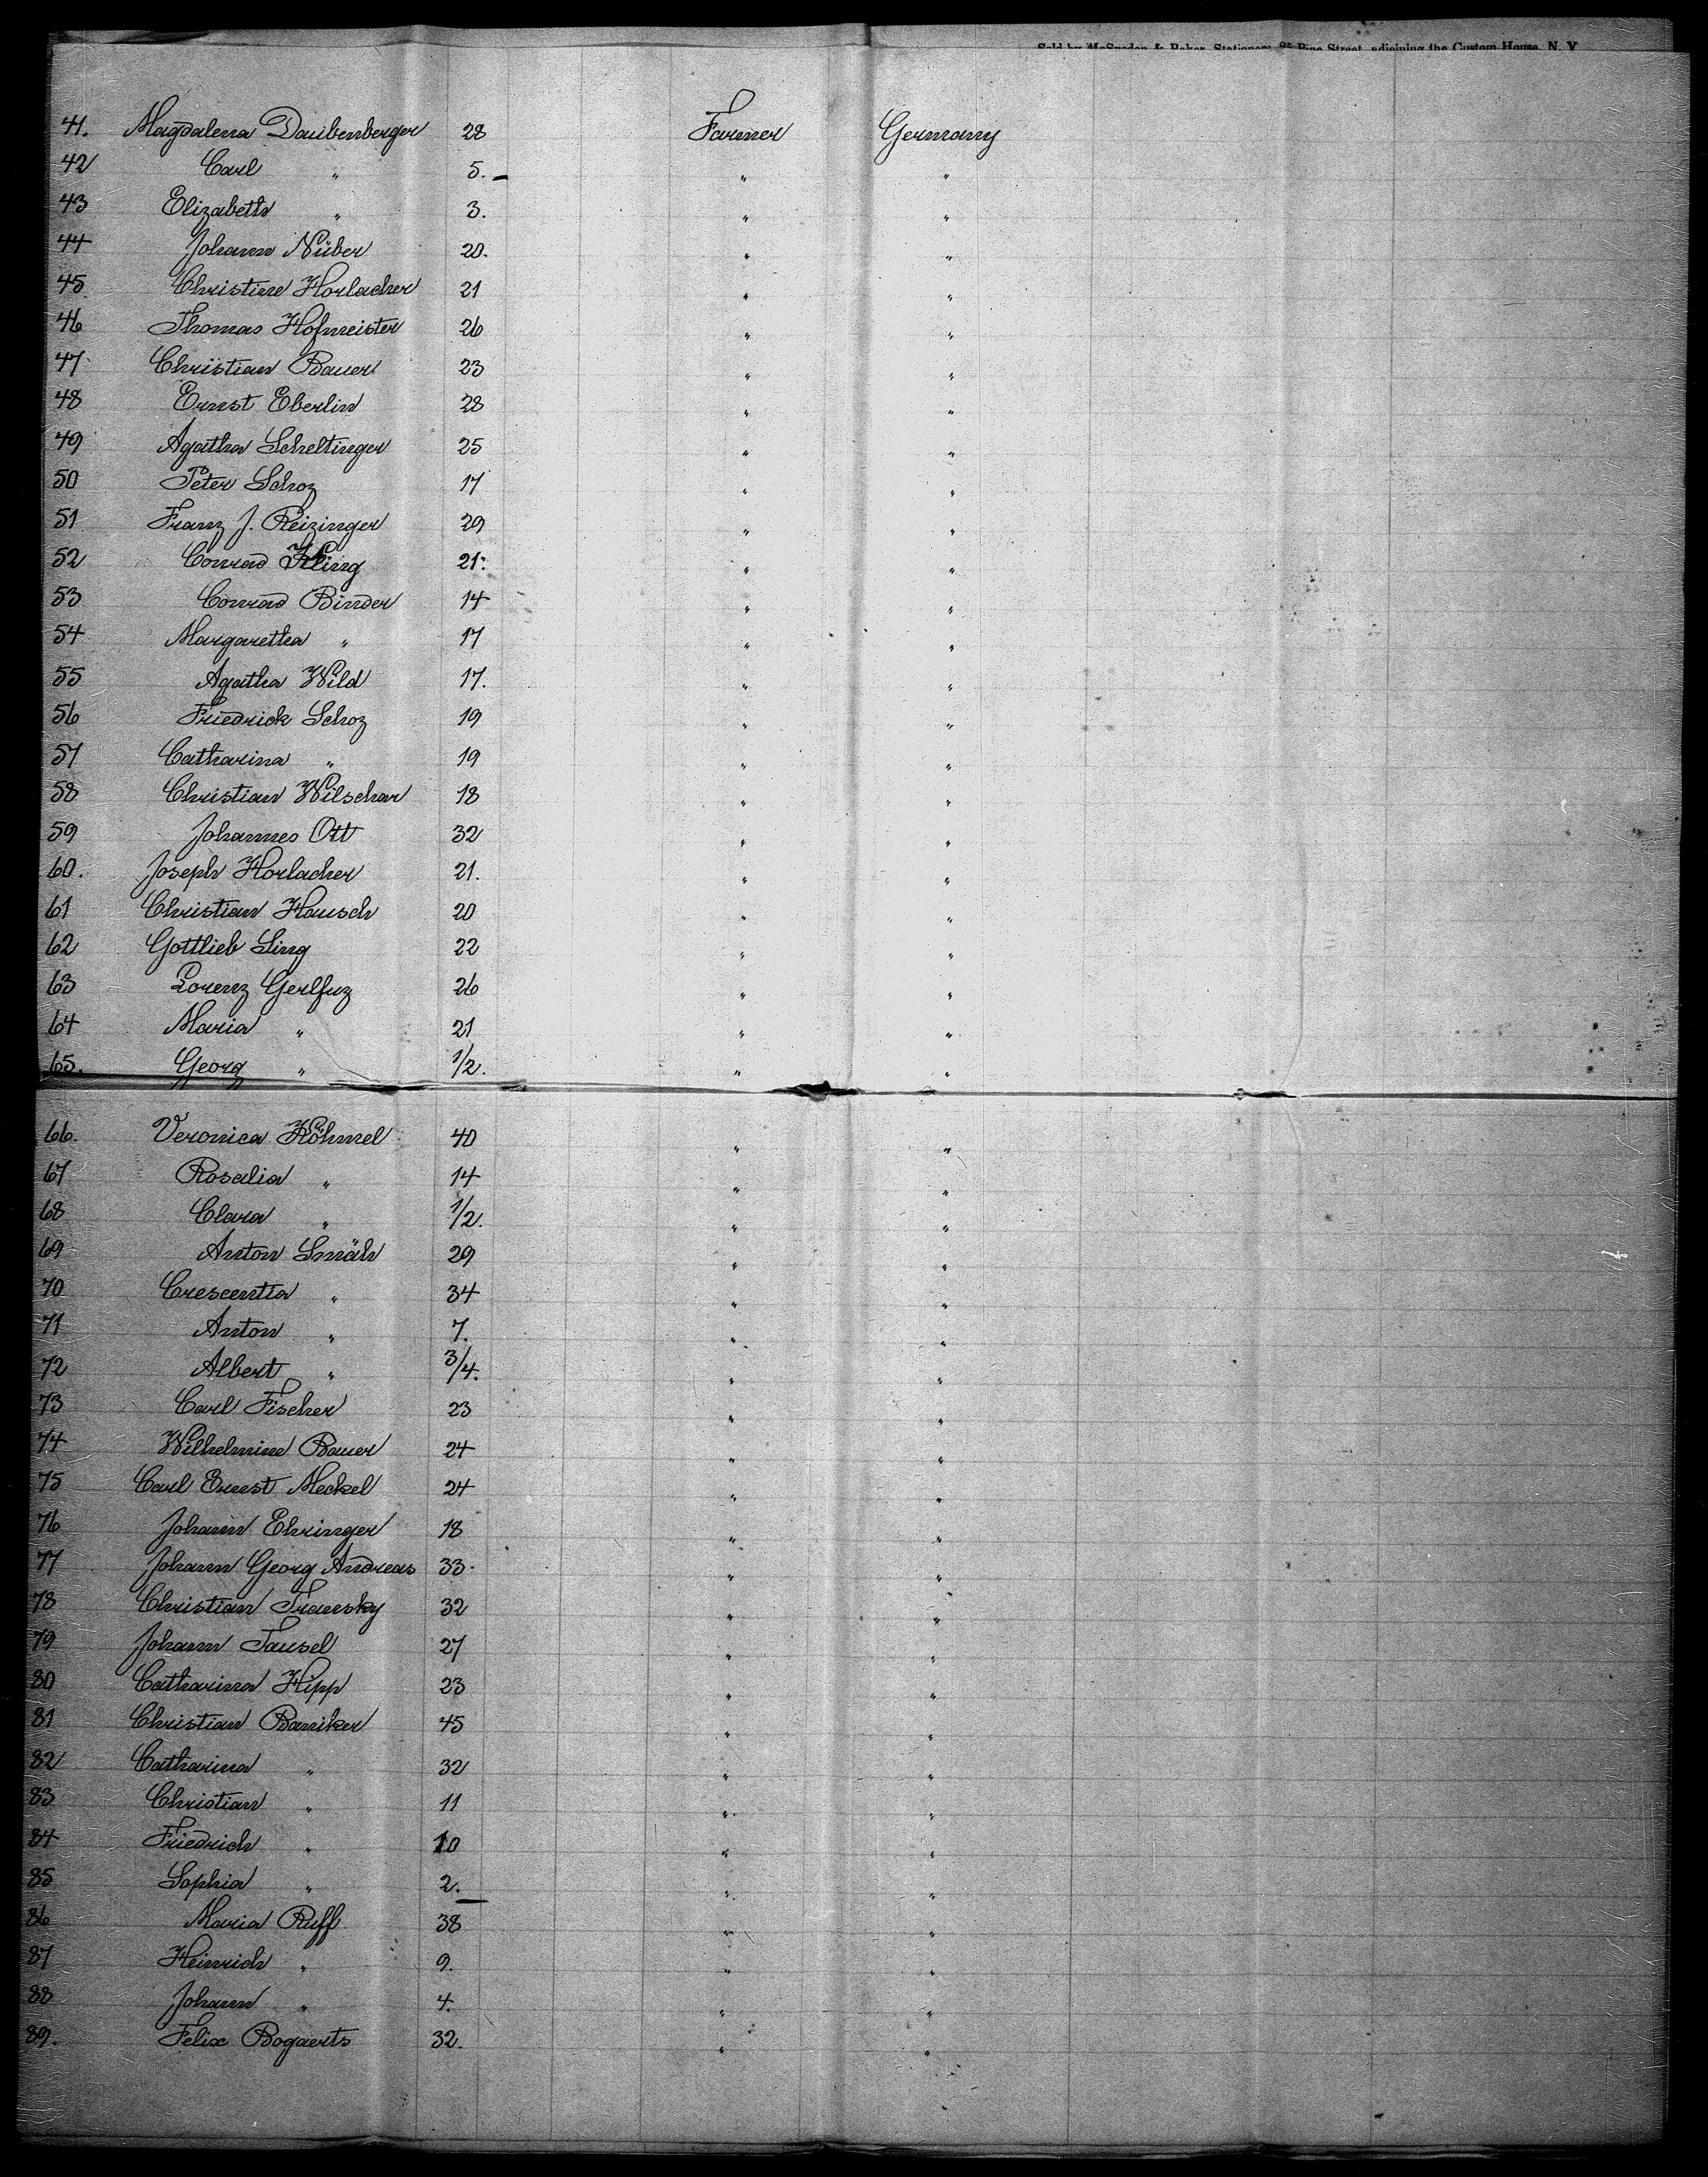 Sold by McSpedon & Baker, Stationers, 25 Pine Street, adjoining the Custom House, N. Y.
41. Magdalena Daubenberger 28 Farmer Germany
42 Carl " 5. " "
43 Elizabeth " 3. " "
44 Johann Nüber 20. " "
45 Christine Horlacher 21 " "
46 Thomas Hofmeister 26 " "
47 Christian Bauer 23 " "
48 Ernst Eberlin 28 " "
49 Agatha Scheltinger 25 " "
50 Peter Schoz 17 " "
51 Franz J. Reizinger 29 " "
52 Conrad Kling 21. " "
53 Conrad Binder 14 " "
54 Margaretha " 17 " "
55 Agatha Wild 17. " "
56 Friedrick Schoz 19 " "
57 Catharina " 19 " "
58 Christian Wilschar 18 " "
59 Johannes Ott 32 " "
60. Joseph Horlacher 21. " "
61 Christian Hausch 20 " "
62 Gottlieb Ling 22 " "
63 Lorenz Gerlfuz 26 " "
64 Maria " 21 " "
65. Georg " 1/2. " "
66. Veronica Höhmel 40 " "
67 Rosalia " 14 " "
68 Clara " 1/2. " "
69 Anton Smäh 29 " "
70 Crescentia " 34 " "
71 Anton " 7. " "
72 Albert " 3/4. " "
73 Carl Fischer 23 " "
74 Wilhelmine Bauer 24 " "
75 Carl Ernst Meckel 24 " "
76 Johann Ehringer 18 " "
77 Johann Georg Andreas 33. " "
78 Christian Transky 32 " "
79 Johann Tausel 27 " "
80 Catharina Hipp 23 " "
81 Christian Baniker 45 " "
82 Catharina " 32 " "
83 Christian " 11 " "
84 Friedrich " 10 " "
85 Sophia " 2. " "
86 Maria Ruff 38 " "
87 Heinrich " 9. " "
88 Johann " 4. " "
89. Felix Bogaerts 32. " "